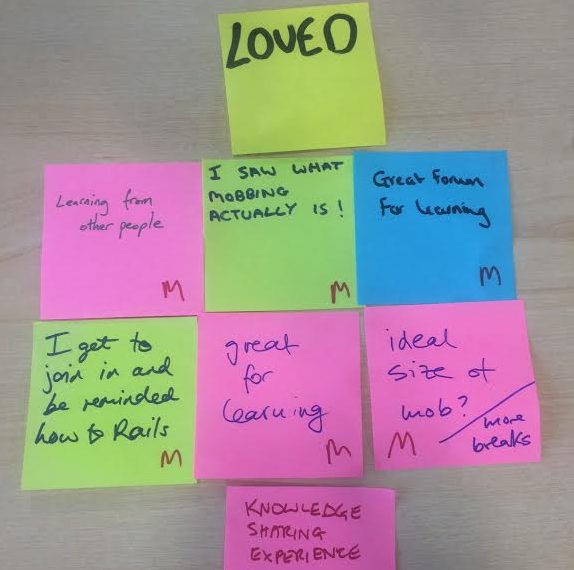 LOVED
Learning from
other people
M
I SAW WHAT
MOBBING
ACTUALLY IS!
M
Great Forum
For learning
M
I get to
join in and
be reminded
how to Rails
M
great
for
learning
M
ideal
size of
mob?
more
breaks
M
KNOWLEDGE
SHARING
EXPERIENCE